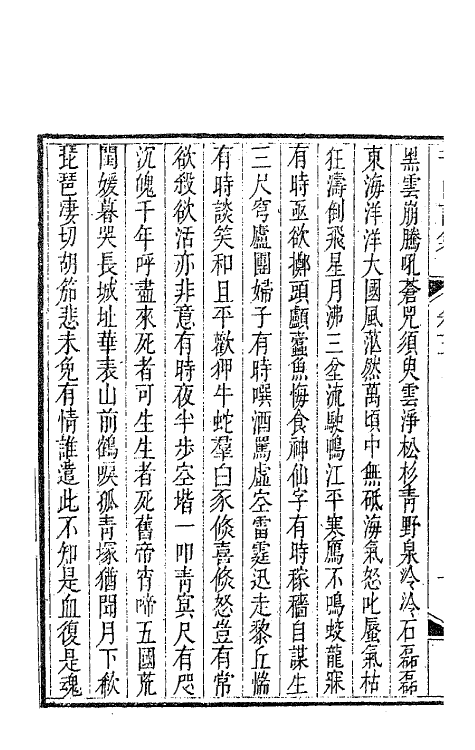 黑雲崩騰吼蒼兕須臾雲淨松杉青野泉泠泠石磊磊
東海洋洋大國風泓然萬頃中無砥海氣怒叱蜃氣枯
狂濤倒飛星月沸三垒流駛鴨江平寒鴈不鳴蛟龍寐
有時亟欲擲頭顱蠹魚悔食神仙字有時稼穡自謀生
三尺穹廬團婦子有時噀酒罵虛空雷霆迅走黎丘惴
有時談笑和且平歡狎牛蛇羣白豕倐喜倐怒豈有常
欲殺欲活亦非意有時夜半步空堦一叩青冥尺有咫
沉魄千年呼盡來死者可生生者死舊帝宵啼五國荒
閨媛暮哭長城址華表山前鶴唳孤青塚猶聞月下秋
琵琶淒切胡笳悲未免有情誰遣此不知是血復是魂